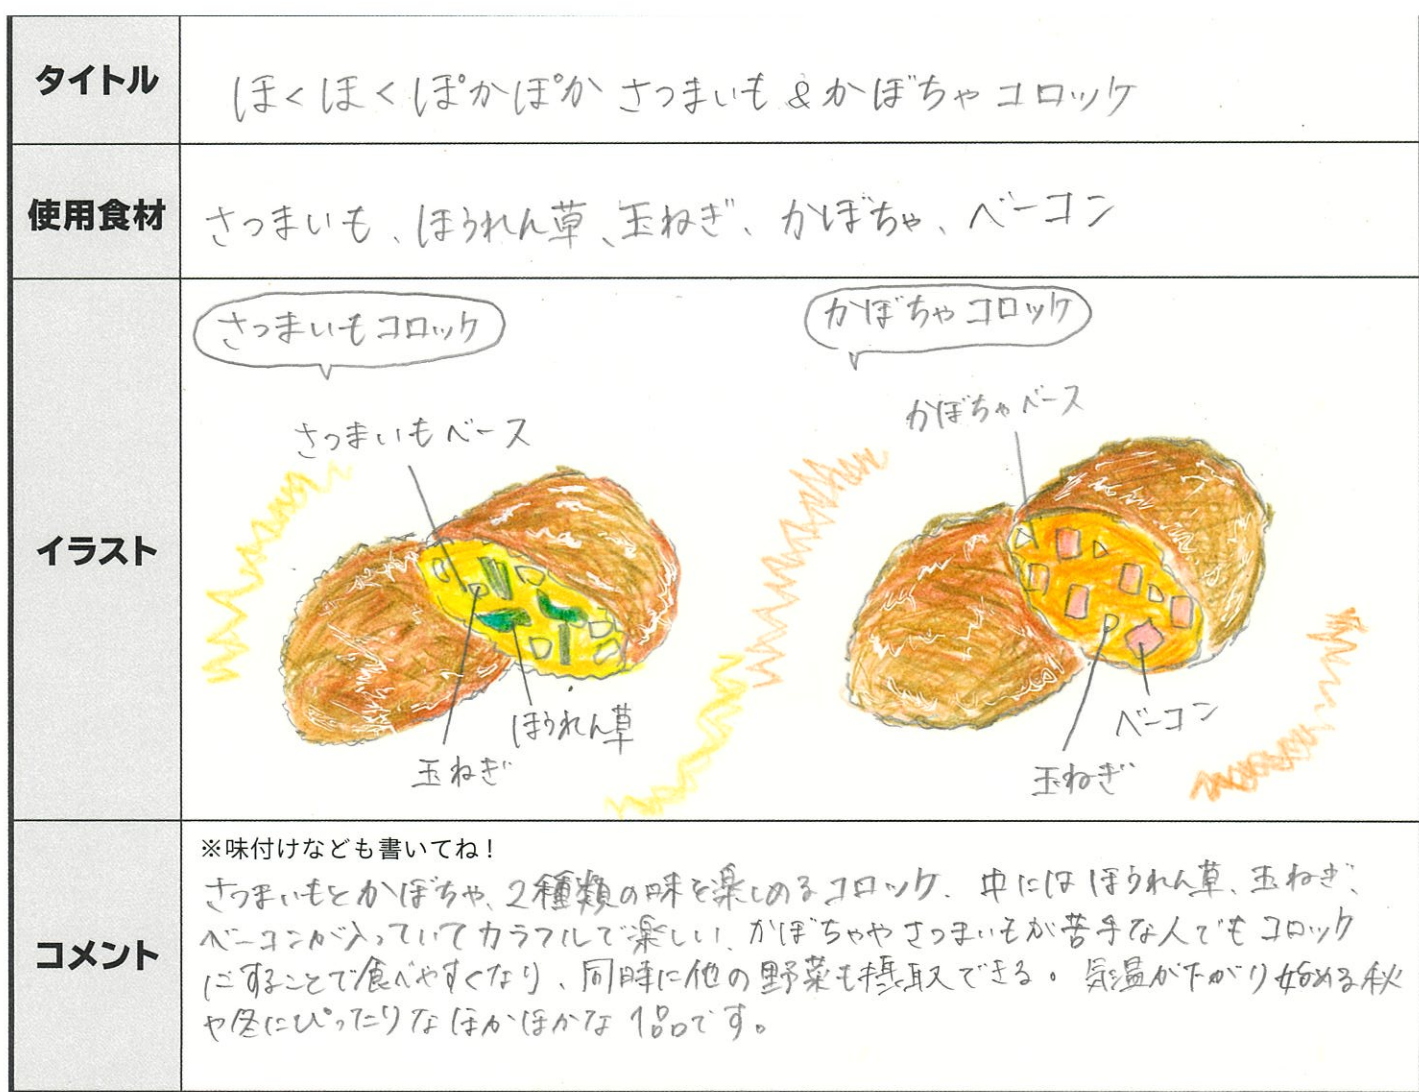 タイトル
ほくほくぽかぽか さつまいも & かぼちゃコロッケ
使用食材
さつまいも、ほうれん草、玉ねぎ、かぼちゃ、ベーコン
イラスト
さつまいもコロッケ
かぼちゃコロッケ
さつまいもベース
かぼちゃベース
ほうれん草
玉ねぎ
ベーコン
玉ねぎ
コメント
※味付けなども書いてね!
さつまいもとかぼちゃ、2種類の味を楽しめるコロッケ、中にはほうれん草、玉ねぎ、
ベーコンが入っていてカラフルで楽しい、かぼちゃやさつまいもが苦手な人でもコロッケ
にすることで食べやすくなり、同時に他の野菜も摂取できる。気温が下がり始める秋
や冬にぴったりなほかほかな1品です。